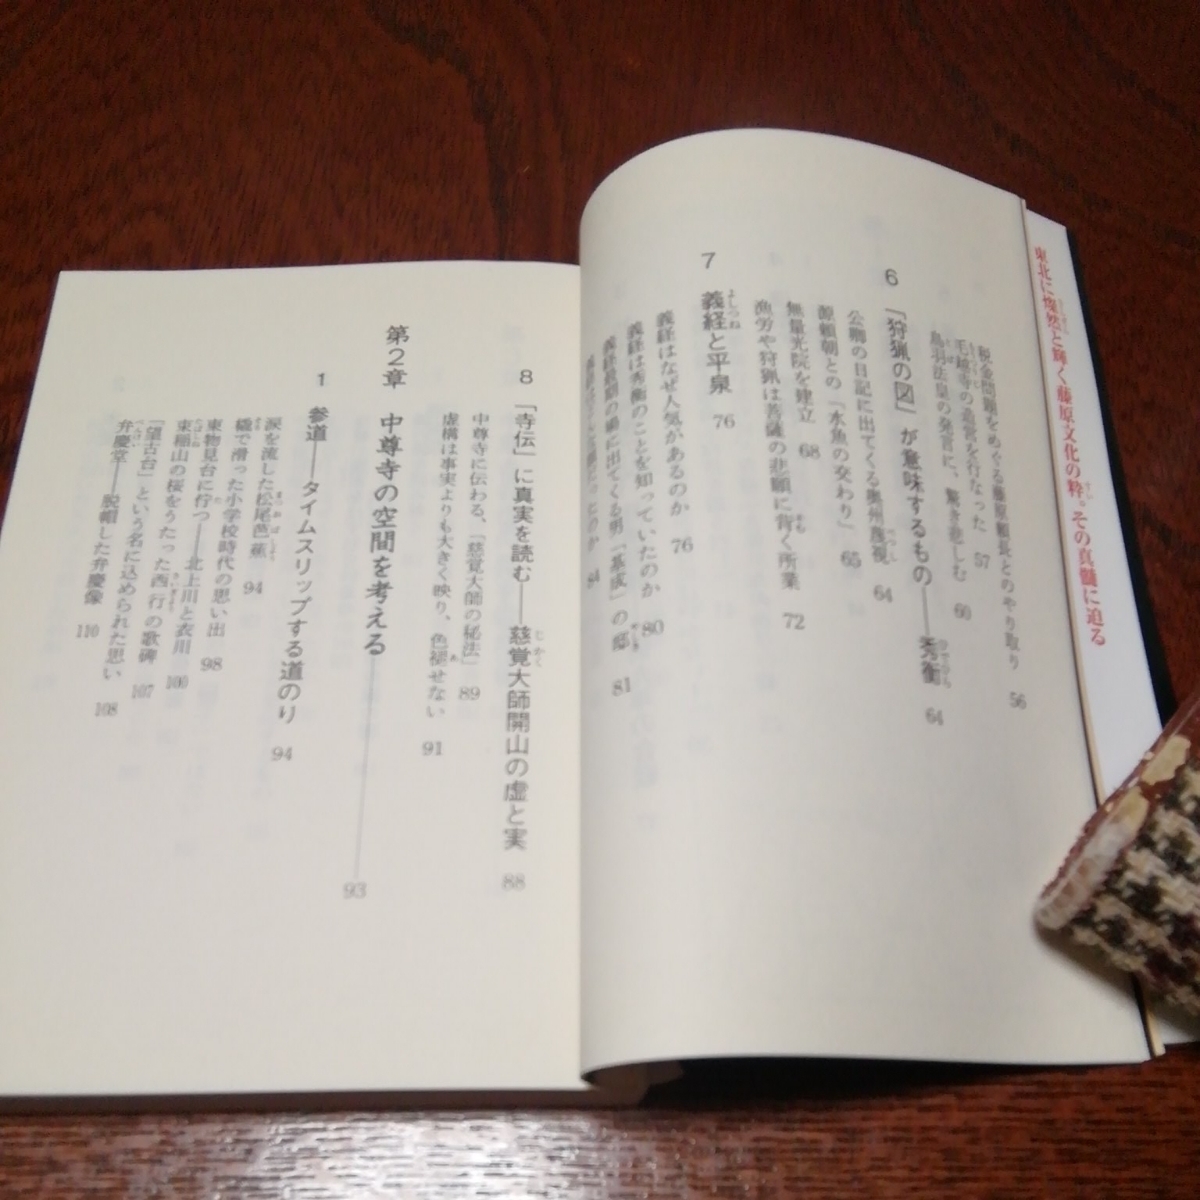 東北に燦然と輝く藤原文化の粋。その真髄に迫る
税金問題をめぐる藤原頼長とのやり取り 56
毛越寺の造営を行なった 57
鳥羽法皇の発言に、驚き悲しむ 60
6 「狩猟の図」が意味するもの——秀衡 64
公卿の日記に出てくる奥州蔑視 64
源頼朝との「水魚の交わり」 65
無量光院を建立 68
漁労や狩猟は菩薩の悲願に背く所業 72
7 義経と平泉 76
義経はなぜ人気があるのか 76
義経は秀衡のことを知っていたのか 80
義経最期の場に出てくる男「基成」の邸 81
84
8 「寺伝」に真実を読む——慈覚大師開山の虚と実 88
中尊寺に伝わる、「慈覚大師の秘法」 89
虚構は事実よりも大きく映り、色褪せない 91
第2章 中尊寺の空間を考える 93
1 参道——タイムスリップする道のり 94
涙を流した松尾芭蕉 94
橇で滑った小学校時代の思い出 98
東物見台に佇つ——北上川と衣川 100
東稲山の桜をうたった西行の歌碑 107
「望古台」という名に込められた思い 108
弁慶堂——脱帽した弁慶像 110